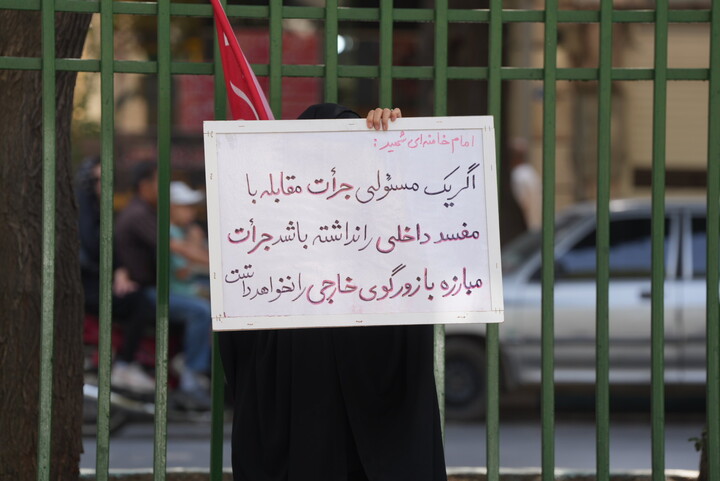 امام خامنه‌ای شهید:
اگر یک مسئولی جرأت مقابله با
مفسد داخلی را نداشته باشد جرأت
مبارزه با زورگوی خارجی را نخواهد داشت